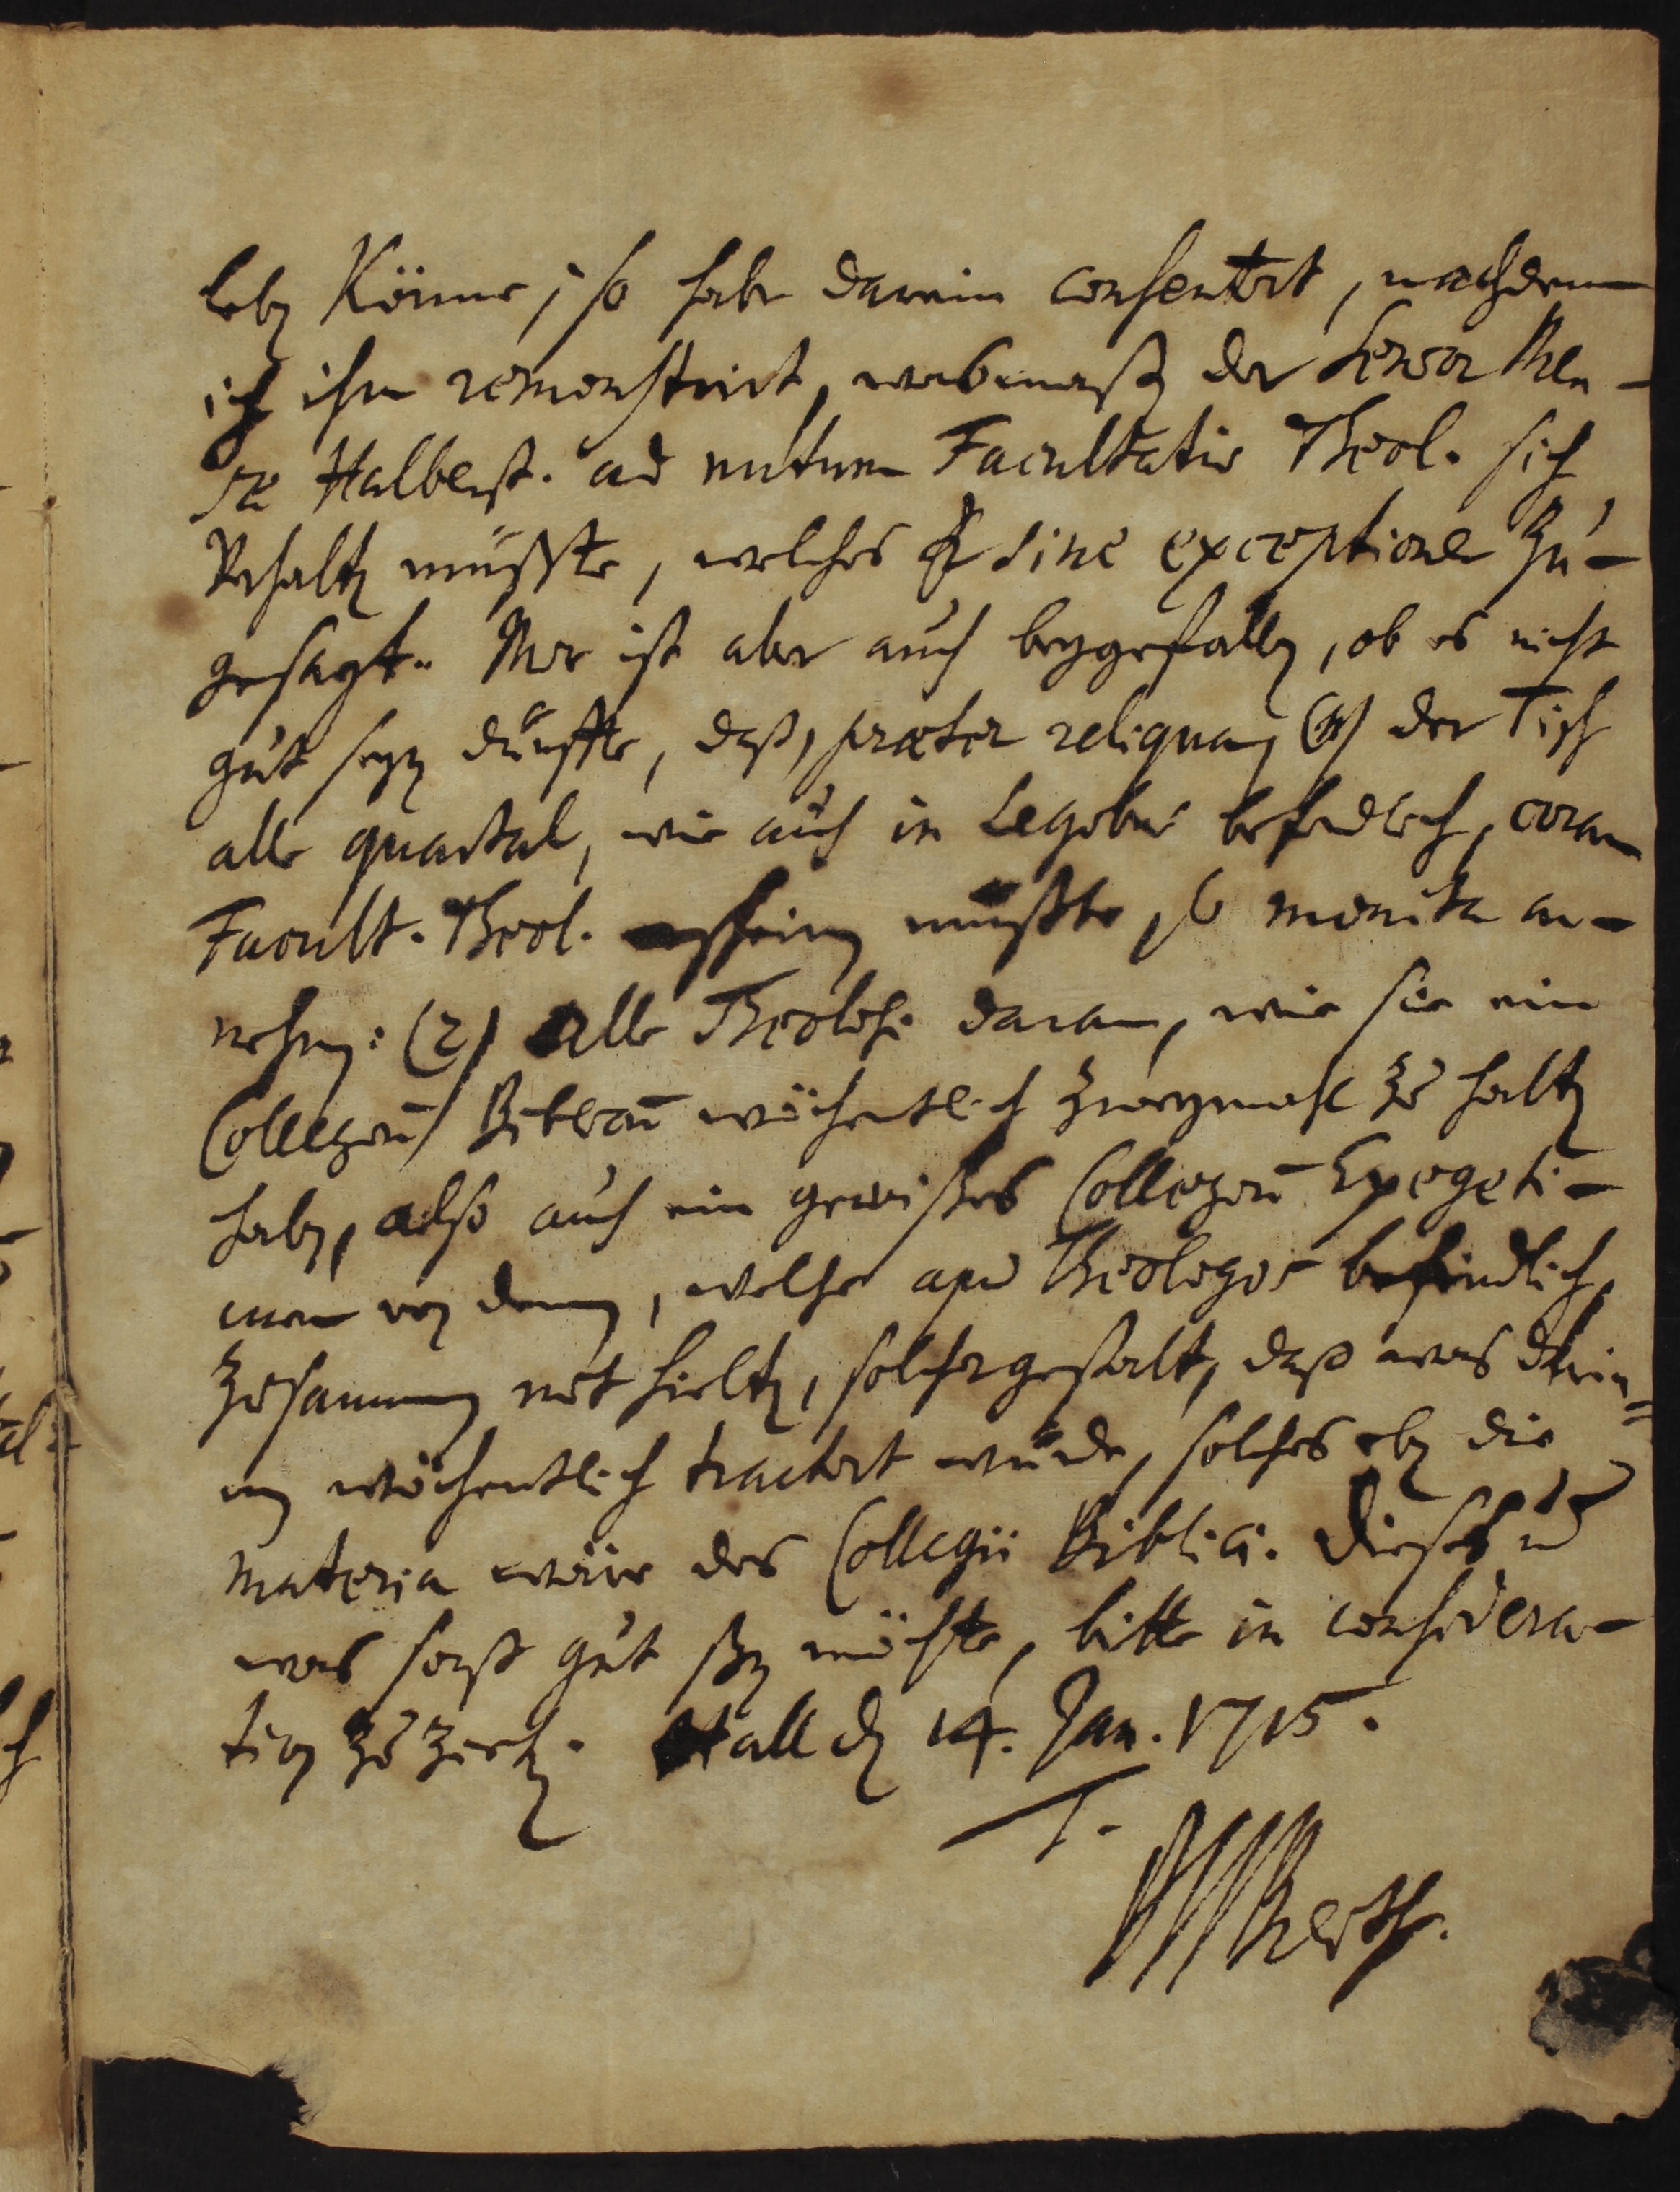 leben könne; so habe darein consentirt, nachdem
ich ihm remonstrirt, wasmaßen der Senior Men-
sæ Halberst. ad nutum Facultatis Theol. sich
verhalten müßte, welches Er sine exceptione zu-
gesagt. Mir ist aber auch beygefallen, ob es nicht
gut seyn dürffte, daß, præter reliqua, (1) der Tisch
alle quartal, wie auch in Legibus befindlich, coram
Facult. Theol. erscheinen müßte, so monita an-
nehmen: (2) Alle Theolog. daran, wie sie ein
Collegiū Biblicū wöchentlich zweymahl zu halten
haben, also auch ein gewißes Collegiū Exegeti-
cum von denen, welche apud Theologos befindlich,
zusammen mit hielten, solchergestalt, daß was darin-
nen wöchentlich tractirt würde, solches eben die
materia wäre des Collegii Biblici. Dieses und
was sonst gut seyn möchte, bitte in considera-
tion zu ziehen. Hall den 14. Jan. 1715.